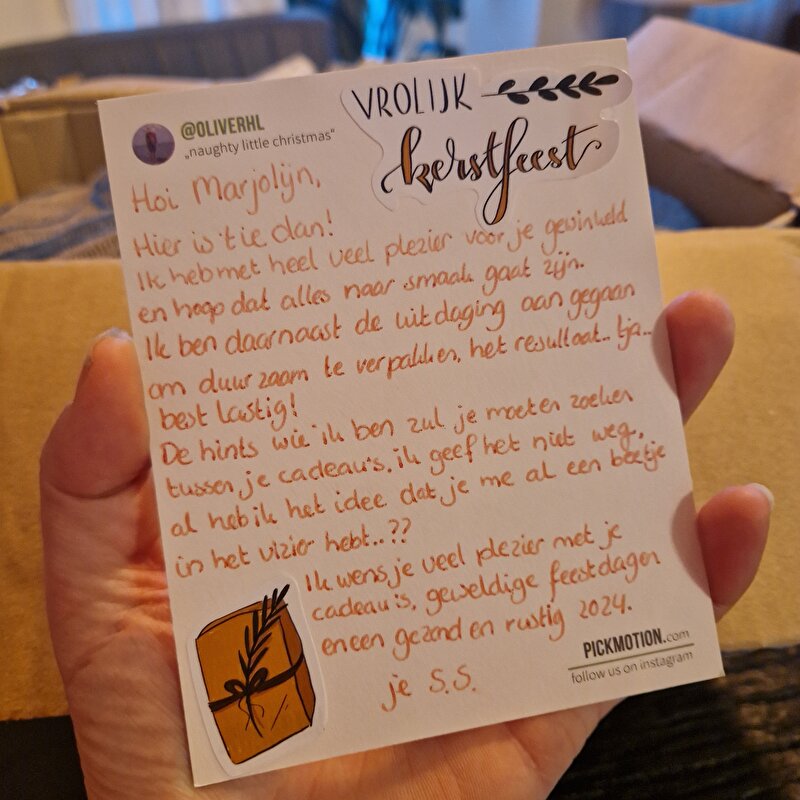 @OLIVERHL
„naughty little christmas“
VROLIJK
kerstfeest
Hoi Marjolijn,
Hier is 't ie dan!
Ik heb met heel veel plezier voor je gewinkeld
en hoop dat alles naar smaak gaat zijn.
Ik ben daarnaast de uitdaging aan gegaan
om duurzaam te verpakken, het resultaat.. tja..
best lastig!
De hints wie ik ben zul je moeten zoeken
tussen je cadeau's, ik geef het niet weg,
al heb ik het idee dat je me al een beetje
in het vizier hebt..??
Ik wens je veel plezier met je
cadeau's, geweldige feestdagen
en een gezond en rustig 2024.
je S.S.
PICKMOTION.com
follow us on instagram